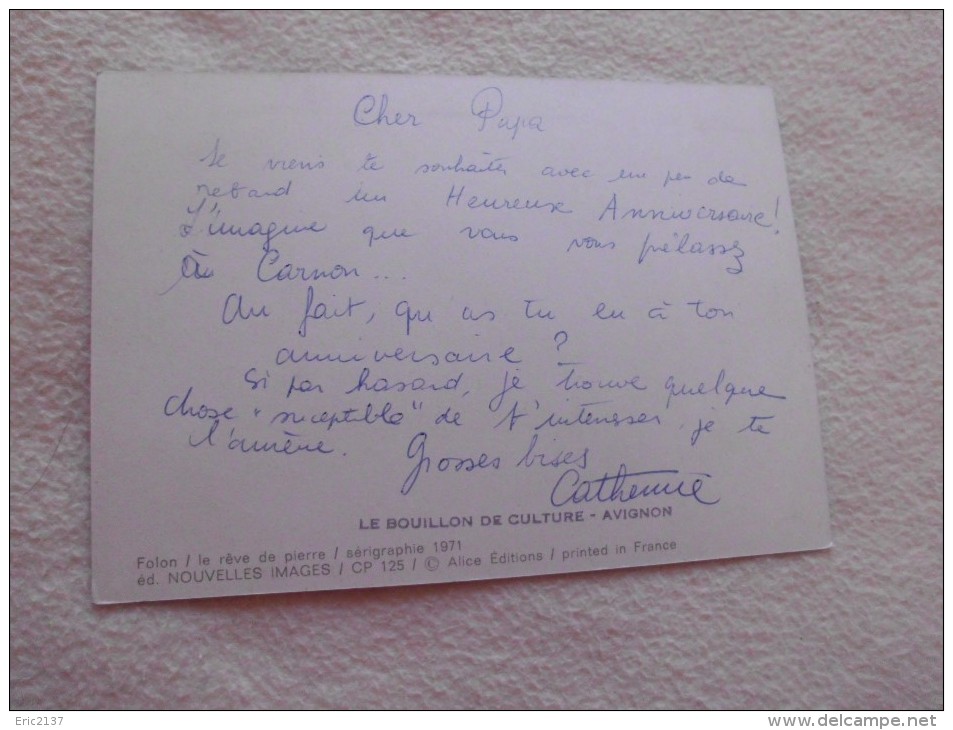 Cher Papa
Je viens te souhaiter avec un peu de
retard un Heureux Anniversaire!
J'imagine que vous vous prélassez
à Carnon...
Au fait, qu'as tu eu à ton
anniversaire ?
Si par hasard, je trouve quelque
chose "suceptible" de t'intéresser je te
l'amène. Grosses bises
Catherine
LE BOUILLON DE CULTURE - AVIGNON
Folon / le rêve de pierre / sérigraphie 1971
éd. NOUVELLES IMAGES / CP 125 / © Alice Éditions / printed in France
Eric2137
www.delcampe.net